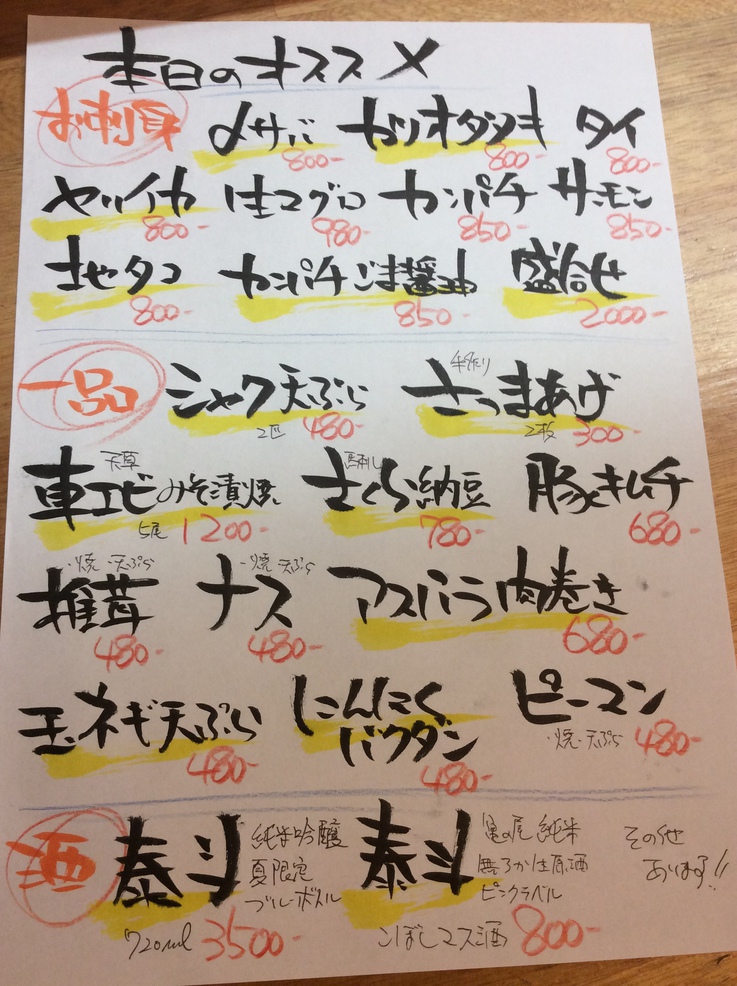 本日のオススメ
お刺身 〆サバ カツオタタキ タイ
800- 800- 800-
ヤリイカ 生マグロ カンパチ サーモン
800- 980- 850- 850-
地タコ カンパチごま醤油 盛合せ
800- 850- 2000-
一品 シャク天ぷら 手作り さつまあげ
2匹 480- 2枚 300-
天草 車エビみそ漬焼 馬刺し さくら納豆 豚キムチ
5尾 1200- 780- 680-
・焼・天ぷら ・焼・天ぷら
椎茸 ナス アスパラ肉巻き
480- 480- 680-
玉ネギ天ぷら にんにくバクダン ピーマン
・焼・天ぷら
480- 480- 480-
酒 泰斗 純米吟醸 泰斗 亀の尾 純米 その他
夏限定 無ろか生原酒 あります!!
ブルーボトル ピンクラベル
720ml 3500- こぼしマス酒 800-